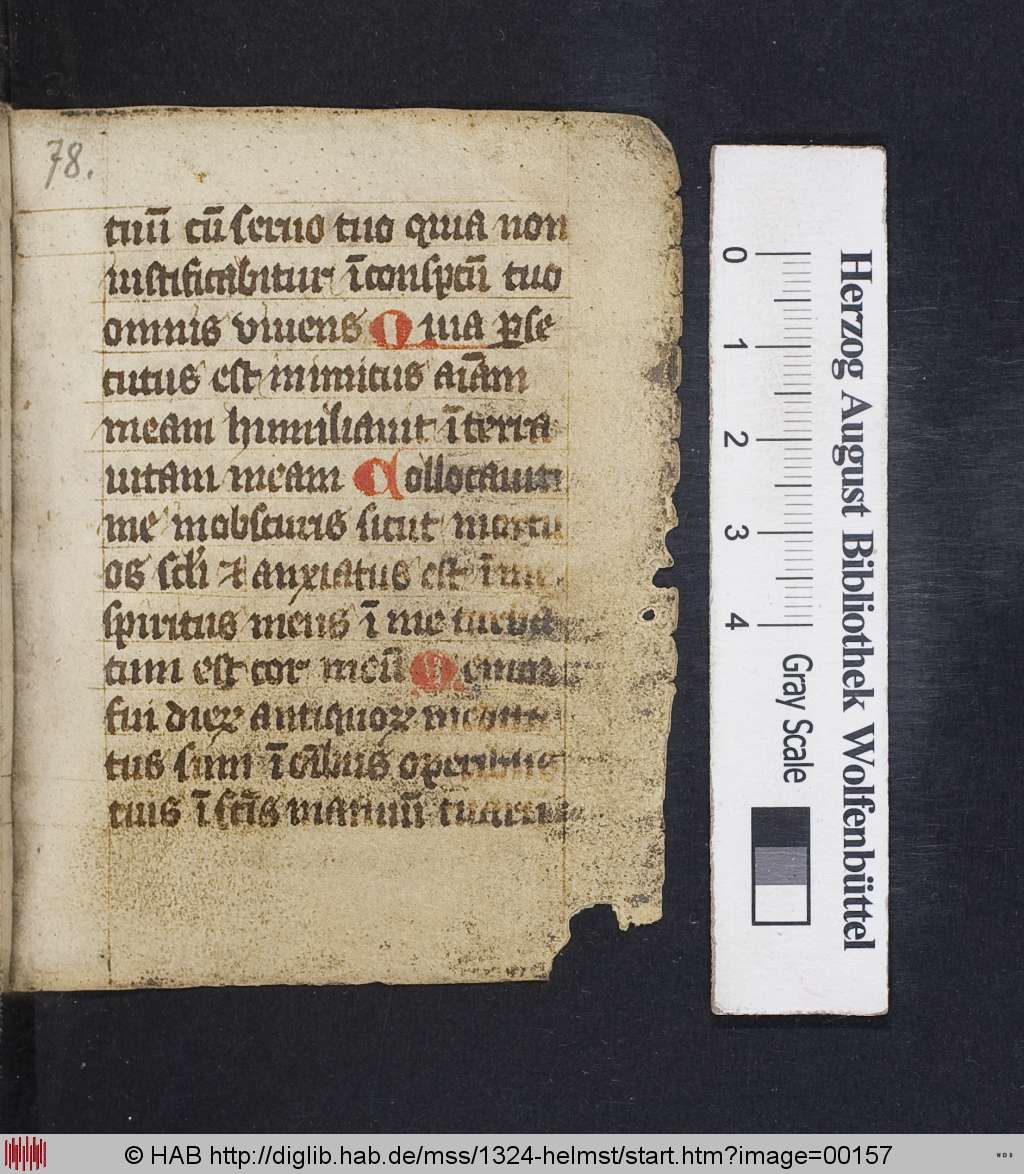 78.
tuū cū seruo tuo quia non
iustificabitur ī conspcū tuo
omnis viuens Quia ꝑse
cutus est inimicus aīam
meam humiliauit ī terra
uitam meam Collocauit
me inobscuris sicut mortu
os scłi ⁊ anxiatus est ī me
spiritus meus ī me turba
tum est cor meū Memor
fui dieꝝ antiquoꝝ medita
tus sum ī oībus operibus
tuis ī fctīs manuū tuarum
0 1 2 3 4
Gray Scale
Herzog August Bibliothek Wolfenbüttel
© HAB http://diglib.hab.de/mss/1324-helmst/start.htm?image=00157